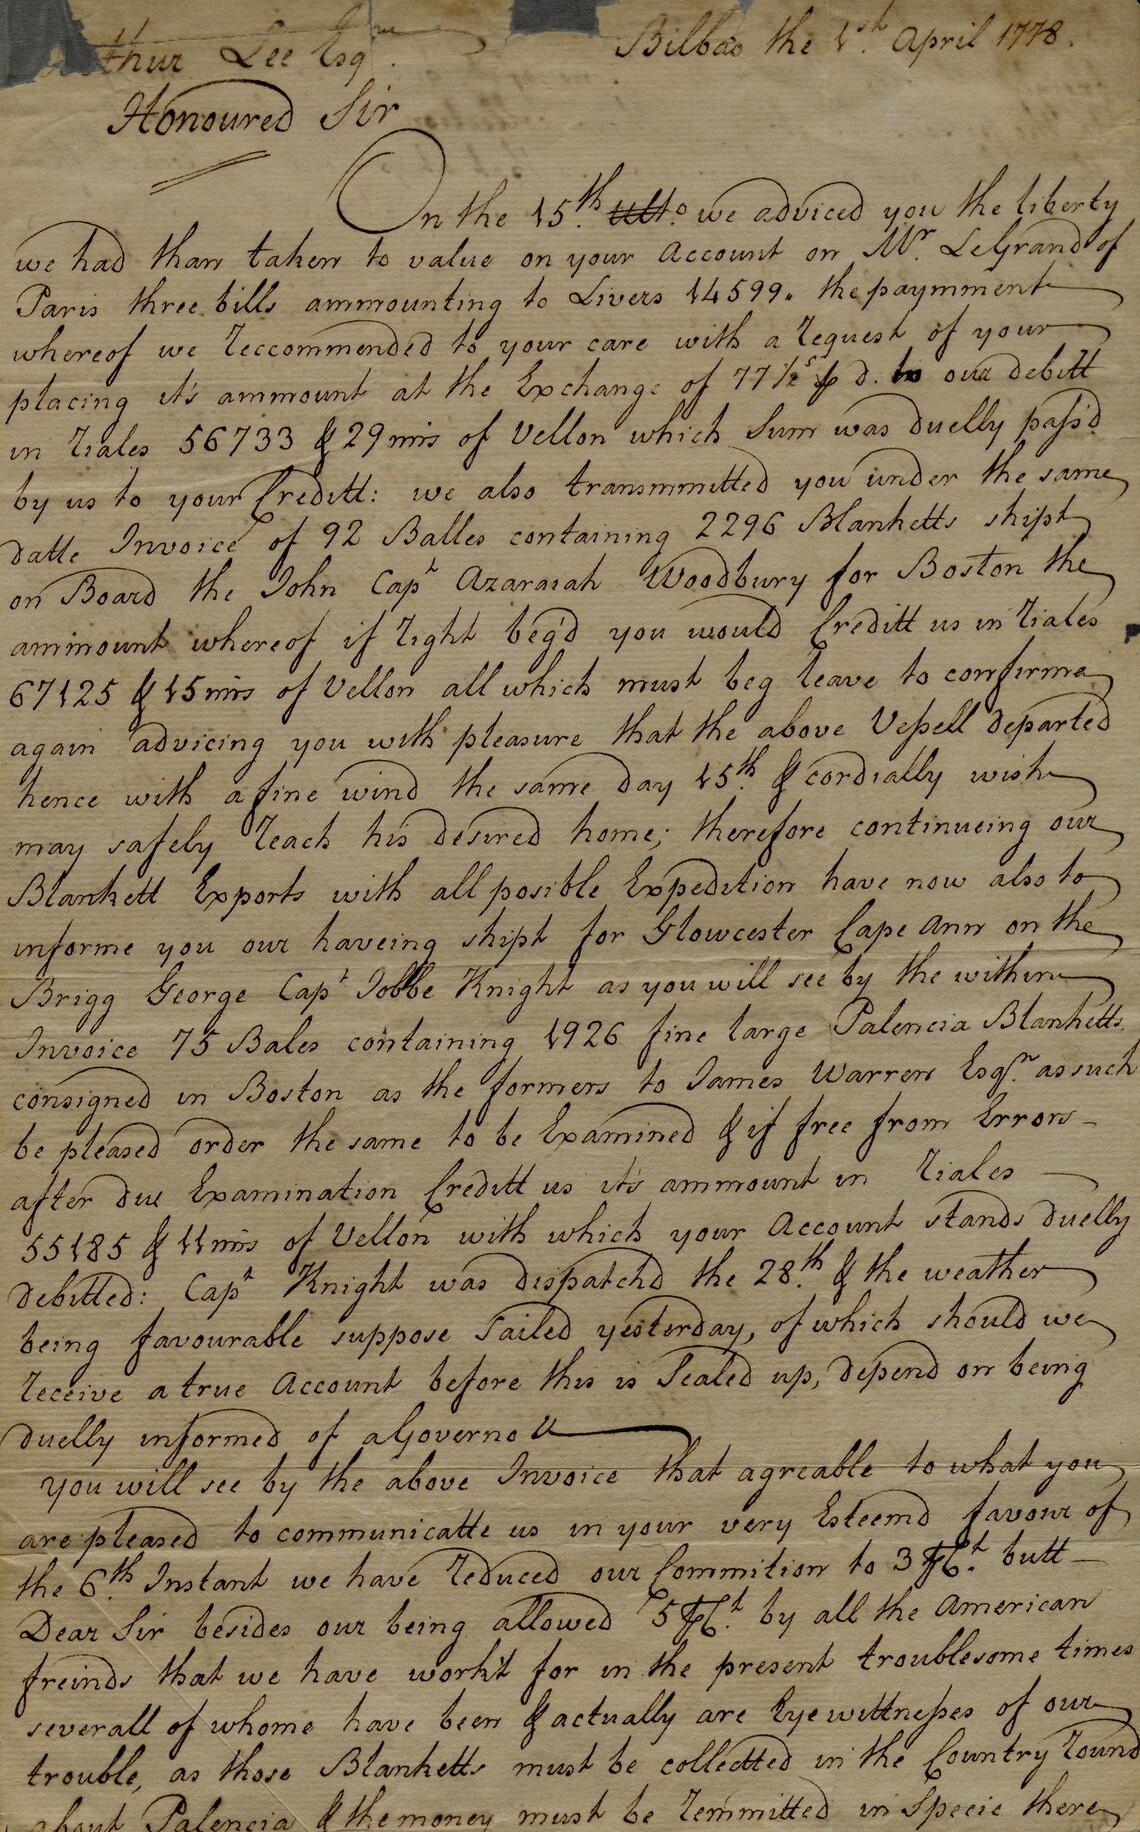 Arthur Lee Esqre. Bilbao the 1st. April 1778.
Honoured Sir
On the 15th. ulto. we adviced you the liberty
we had than taken to value on your Account on Mr. LeGrand of
Paris three bills ammounting to Livers 14599. the paymment
whereof we Reccommended to your care with a Request of your
placing it's ammount at the Exchange of 77½ s p d. to our debitt
in Riales 56733 & 29 mrs of Vellon which Sum was duelly pass'd
by us to your Creditt: we also transmmitted you under the same
datte Invoice of 92 Balles containing 2296 Blanketts shipt
on Board the John Capt Azaraiah Woodbury for Boston the
ammount whereof if Right beg'd you would Creditt us in Riales
67125 & 15 mrs of Vellon all which must beg leave to confirme
again advicing you with pleasure that the above Vessell departed
hence with a fine wind the same day 15th. & cordially wish
may safely Reach his desired home; therefore continueing our
Blankett Exports with all posible Expedition have now also to
informe you our haveing shipt for Glowcester Cape Ann on the
Brigg George Capt Jobbe Knight as you will see by the within
Invoice 75 Bales containing 1926 fine large Palencia Blanketts
consigned in Boston as the formers to James Warren Esqr. as such
be pleased order the same to be Examined & if free from Errors
after due Examination Creditt us it's ammount in Riales
55185 & 11 mrs of Vellon with which your Account stands duelly
debitted: Capt Knight was dispatchd the 28th. & the weather
being favourable suppose Sailed yesterday, of which should we
Receive a true Account before this is Sealed up, depend on being
duelly informed of a Governo
You will see by the above Invoice that agreable to what you
are pleased to communicatte us in your very Esteemd favour of
the 6th. Instant we have Reduced our Commition to 3 p Ct. butt
Dear Sir besides our being allowed 5 p Ct. by all the American
freinds that we have work't for in the present troublesome times
severall of whome have been & actually are Eye wittnesses of our
trouble, as those Blanketts must be collectted in the Country Round
about Palencia & the money must be Remmitted in Specie there